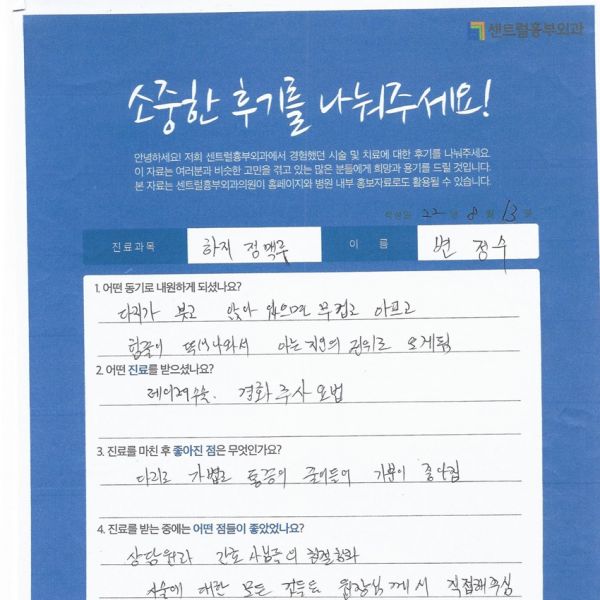 센트럴흉부외과
소중한 후기를 나눠주세요!
안녕하세요! 저희 센트럴흉부외과에서 경험했던 시술 및 치료에 대한 후기를 나눠주세요.
이 자료는 여러분과 비슷한 고민을 겪고 있는 많은 분들에게 희망과 용기를 드릴 것입니다.
본 자료는 센트럴흉부외과의원이 홈페이지와 병원 내부 홍보자료로도 활용될 수 있습니다.
작성일 22 년 8 월 13 일
진료과목 하지 정맥류 이 름 변 정수
1. 어떤 동기로 내원하게 되셨나요?
다리가 붓고 앉아 있으면 무겁고 아프고
힘줄이 튀어나와서 아는 지인의 권유로 오게됨
2. 어떤 진료를 받으셨나요?
레이저수술, 경화 주사 요법
3. 진료를 마친 후 좋아진 점은 무엇인가요?
다리로 가볍고 통증이 줄어들어 기분이 좋아짐
4. 진료를 받는 중에는 어떤 점들이 좋았었나요?
상담원과 간호사분들의 친절함과
시술에 대한 모든 것들을 원장님께서 직접해주심